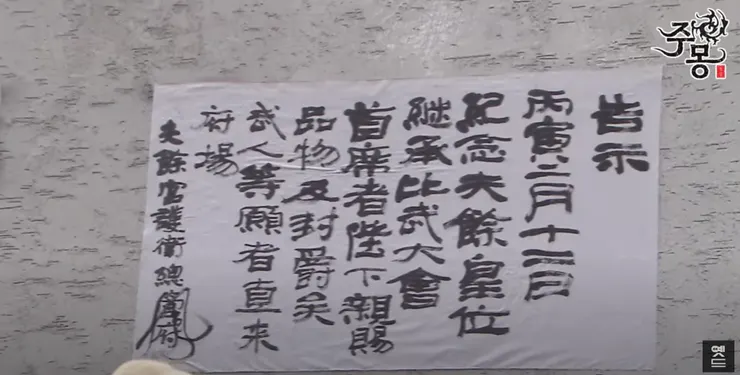 告示
丙寅 月十二日
紀念夫餘皇位
繼承比武大會
首席者陛下親賜
品物及封爵矣
武人等願者直来
府場
夫餘宮護衛總
주몽
옛드